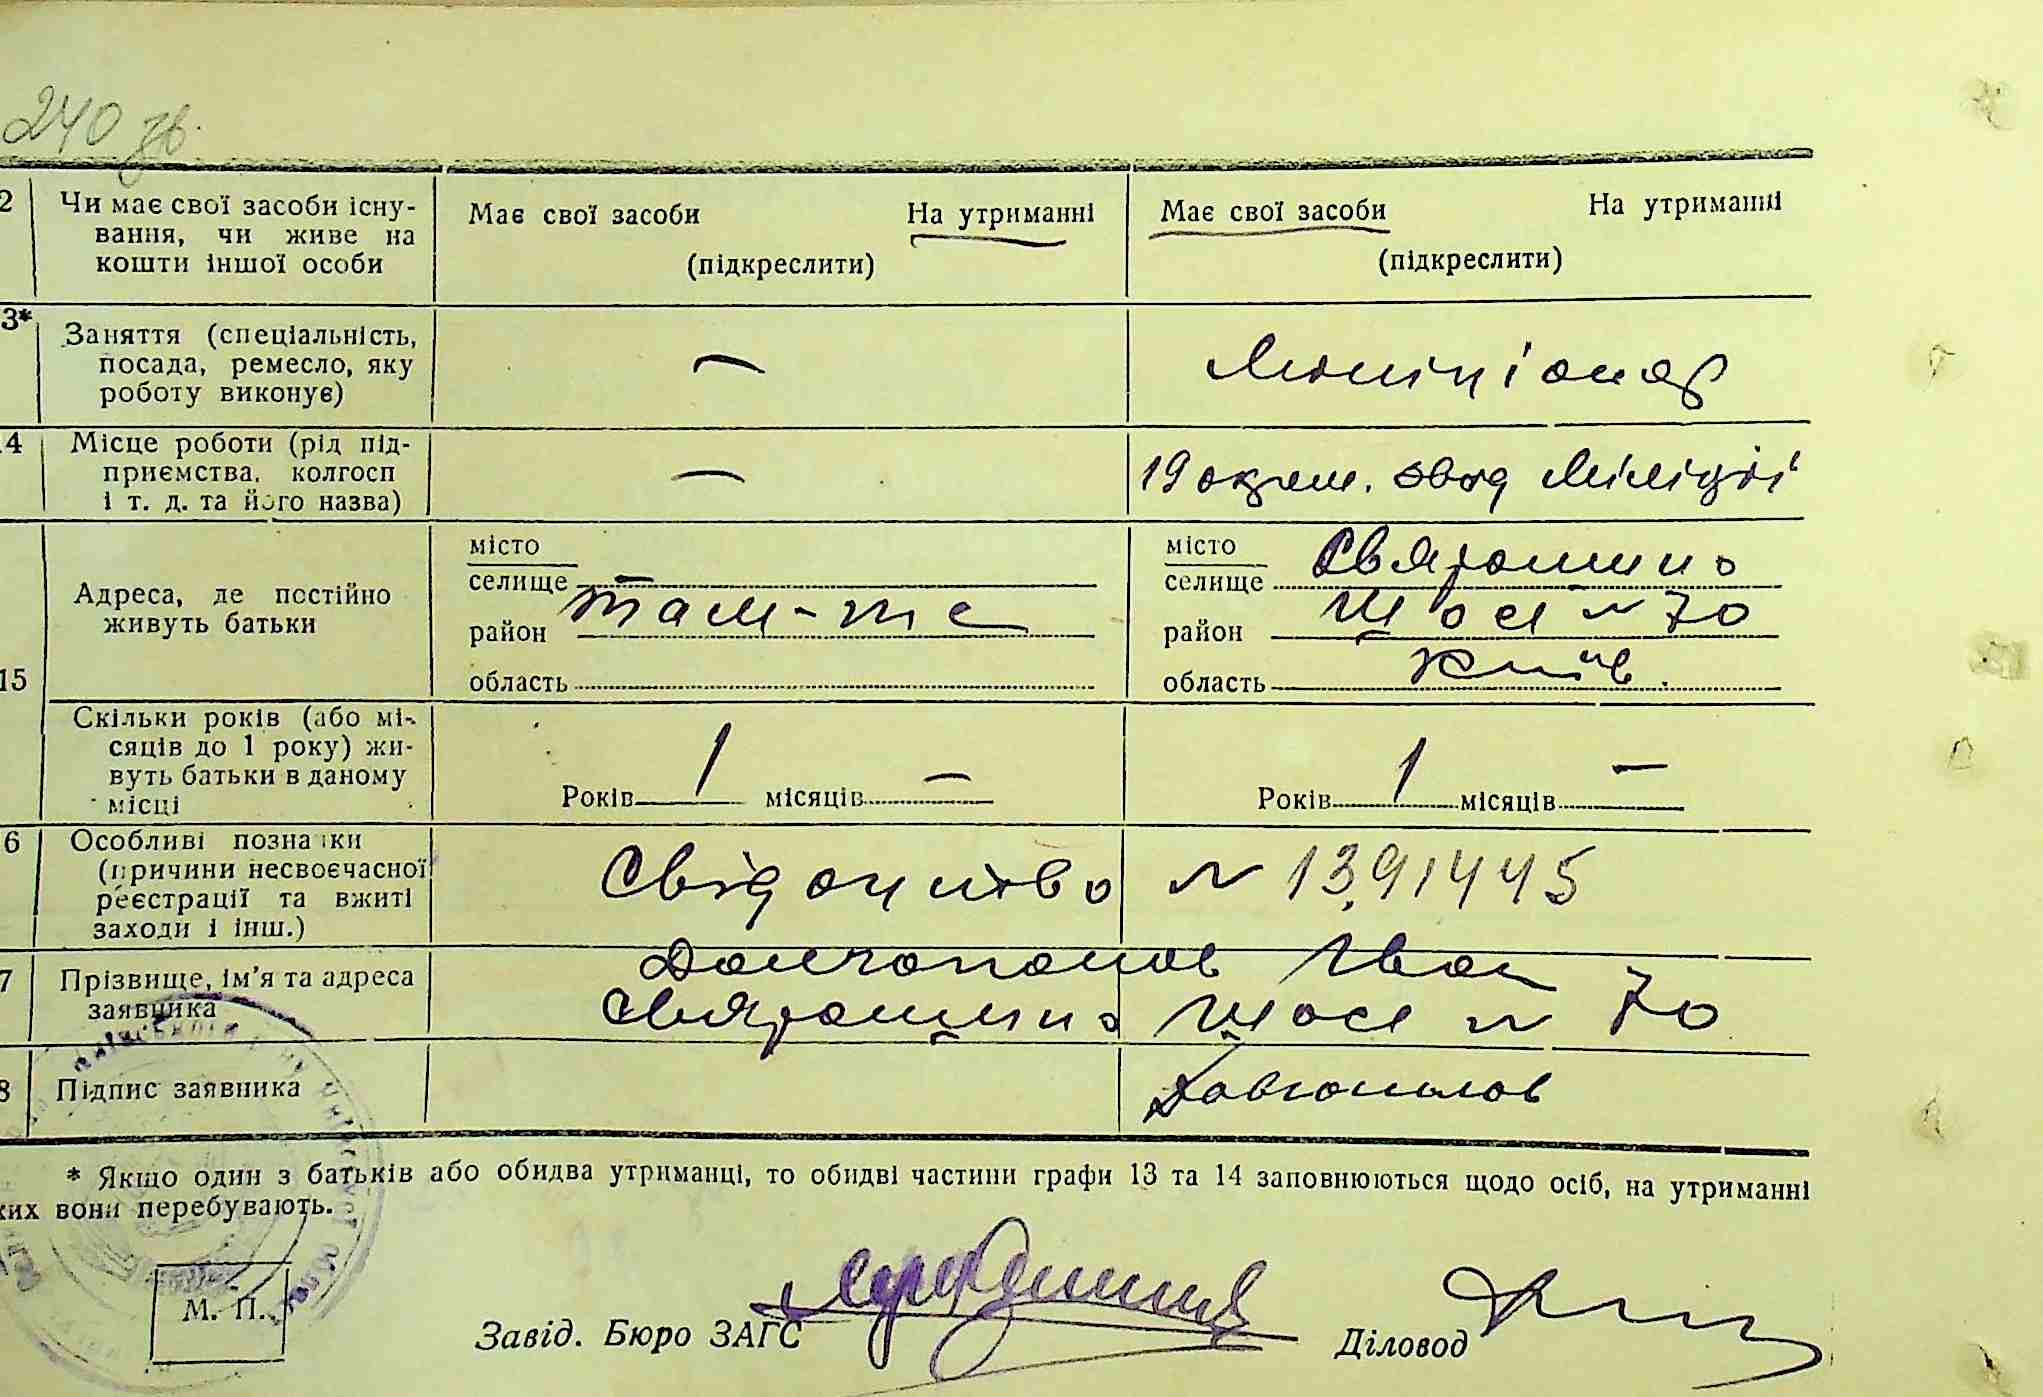 240 зв.
2 Чи має свої засоби існу-
вання, чи живе на
кошти іншої особи
Має свої засоби На утриманні
(підкреслити)
Має свої засоби На утриманні
(підкреслити)
3* Заняття (спеціальність,
посада, ремесло, яку
роботу виконує)
—
Міліціонер
4 Місце роботи (рід під-
приємства, колгосп
і т. д. та його назва)
—
19 окрем. звод Міліції
15
Адреса, де постійно
живуть батьки
місто
селище —
район там-же
область
місто
селище Святошино
район Шосе № 70
область Київ.
Скільки років (або мі-
сяців до 1 року) жи-
вуть батьки в даному
місці
Років 1 місяців —
Років 1 місяців —
6 Особливі познаки
(причини несвоєчасної
реєстрації та вжиті
заходи і інш.)
Свідоцтво № 1391445
7 Прізвище, ім'я та адреса
заявника
Іван
Святошино Шосе № 70
8 Підпис заявника
* Якщо один з батьків або обидва утриманці, то обидві частини графи 13 та 14 заповнюються щодо осіб, на утриманні
ких вони перебувають.
М. П.
Завід. Бюро ЗАГС
Діловод